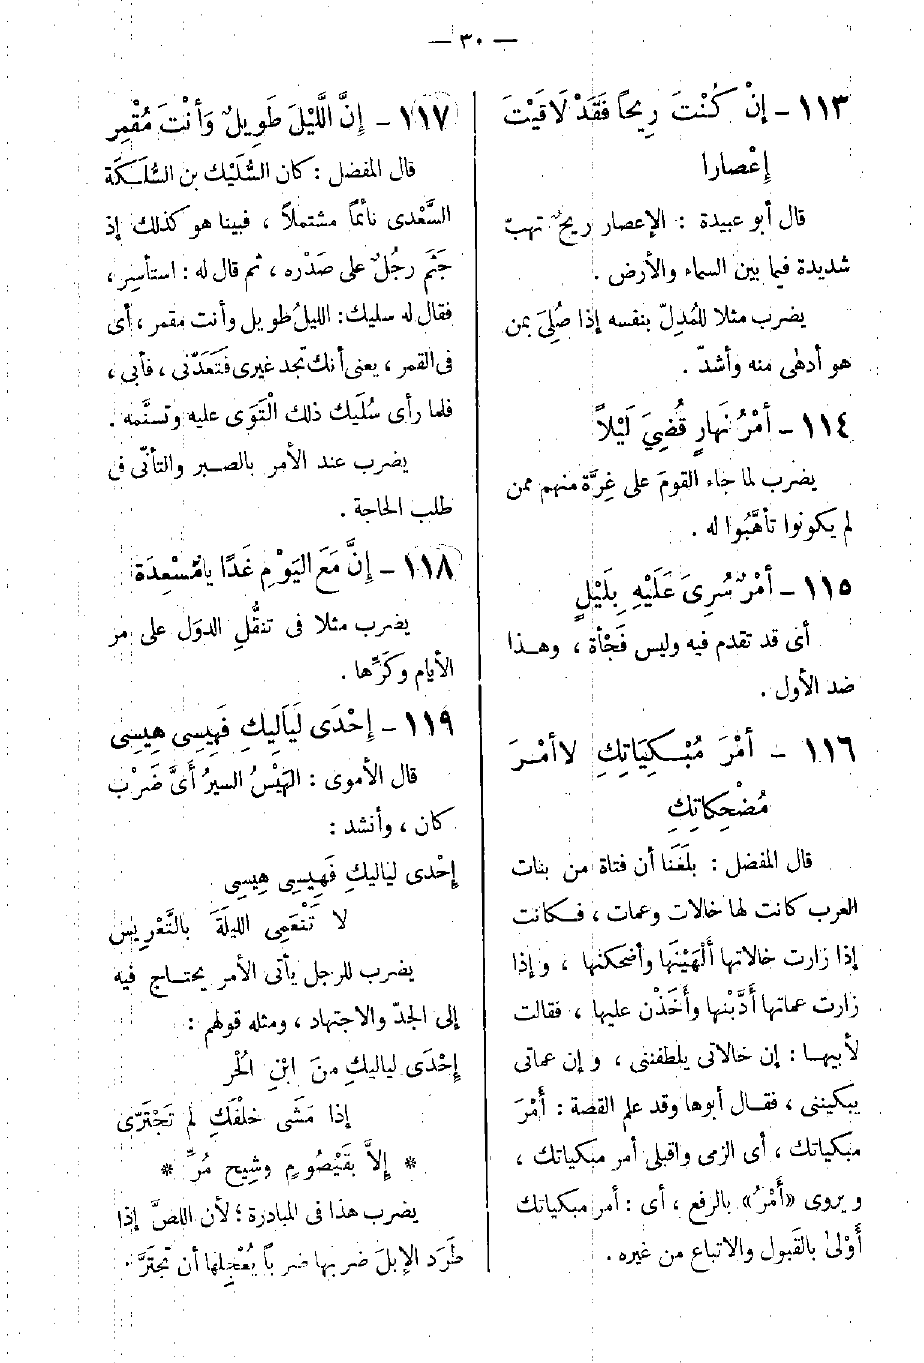 — ٣٠ —
١١٣ - إنْ كُنْتَ رِيحًا فَقَدْ لَاقَيْتَ
إعْصارا
قال أبو عبيدة : الإعصار ريحٌ تهبّ
شديدة فيما بين السماء والأرض .
يضرب مثلا للمُدِلّ بنفسه إذا صُلِىَ بمن
هو أدهى منه وأشدّ .
١١٤ - أمْرُ نَهارٍ قُضِيَ لَيْلاً
يضرب لما جاء القومَ على غِرَّة منهم ممن
لم يكونوا تأهَّبُوا له .
١١٥ - أمْرٌ سُرِىَ عَلَيْهِ بِلَيْلٍ
أى قد تقدم فيه وليس فَجْأة ، وهذا
ضد الأول .
١١٦ - أمْرَ مُبْكِيَاتِكِ لا أمْرَ
مُضْحِكاتِكِ
قال المفضل : بلَغَنا أن فتاة من بنات
العرب كانت لها خالات وعمات ، فكانت
إذا زارت خالاتها ألْهَيْنَها وأضحكنها ، وإذا
زارت عماتها أدَّبْنها وأخَذْن عليها ، فقالت
لأبيها : إن خالاتى يلطفننى ، وإن عماتى
يبكيننى ، فقال أبوها وقد علم القصة : أمْرَ
مبكياتك ، أى الزمى واقبلى أمر مبكياتك ،
ويروى «أمْرُ» بالرفع ، أى : أمر مبكياتك
أوْلىٰ بالقَبول والاتباع من غيره .
١١٧ - إنَّ اللَّيْلَ طَوِيلٌ وَأنْتَ مُقْمِر
قال المفضل : كان السُّلَيْك بن السُّلَكَة
السَّعْدى نائمًا مشتملاً ، فبينا هو كذلك إذ
جَثَم رجُلٌ على صَدْره ، ثم قال له : استأسِر ،
فقال له سليك: الليلُ طويل وأنت مقمر ، أى
فى القمر ، يعنى أنك تجد غيرى فتَعَدَّنى ، فأبى ،
فلما رأى سُلَيك ذلك الْتَوَى عليه وتسنَّمه .
يضرب عند الأمر بالصبر والتأنّى فى
طلب الحاجة .
١١٨ - إنَّ مَعَ اليَوْمِ غَدًا يامُسْعِدَة
يضرب مثلا فى تنقُّلِ الدوَل على مر
الأيام وكَرِّها .
١١٩ - إحْدَى لَيَالِيكِ فَهِيسِى هِيسِى
قال الأموى : الهَيْسُ السيرُ أىَّ ضَرْب
كان ، وأنشد :
إحْدى لياليكِ فَهِيسِى هِيسِى
لا تَنْعَمِى الليلةَ بالتَّعْرِيسِ
يضرب للرجل يأتى الأمر يحتاج فيه
إلى الجدّ والاجتهاد ، ومثله قولهم :
إحْدَى لياليكِ منَ ابْنِ الحُر
إذا مَشَى خلْفَكِ لم تَجْتَرِّى
* إلاَّ بقَيْصُومٍ وشِيحٍ مُرِّ *
يضرب هذا فى المبادرة ؛ لأن اللصَّ إذا
طَرَد الإبلَ ضربها ضربًا يُعْجِلها أن تجتَرَّ .